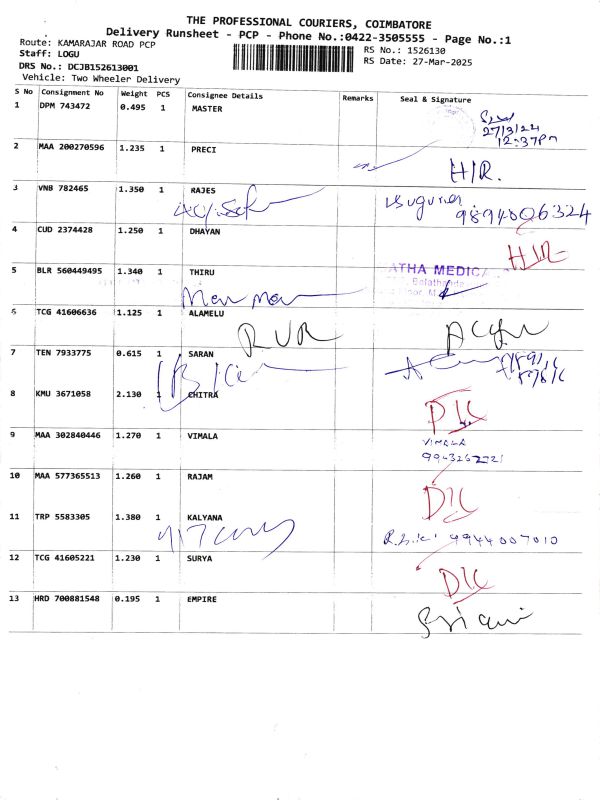 THE PROFESSIONAL COURIERS, COIMBATORE
Delivery Runsheet - PCP - Phone No.:0422-3505555 - Page No.:1
Route: KAMARAJAR ROAD PCP
RS No.: 1526130
Staff: LOGU
RS Date: 27-Mar-2025
DRS No.: DCJB152613001
Vehicle: Two Wheeler Delivery
S No Consignment No Weight PCS Consignee Details Remarks Seal & Signature
1 DPM 743472 0.495 1 MASTER
27/3/24
12:37Pm
2 MAA 200270596 1.235 1 PRECI
H/R.
3 VNB 782465 1.350 1 RAJES
9894006324
4 CUD 2374428 1.250 1 DHAYAN
H/R
5 BLR 560449495 1.340 1 THIRU
ATHA MEDICA
6 TCG 41606636 1.125 1 ALAMELU
RUR
7 TEN 7933775 0.615 1 SARAN
8 KMU 3671058 2.130 1 CHITRA
9 MAA 302840446 1.270 1 VIMALA
VIMALA
10 MAA 577365513 1.260 1 RAJAM
D/C
11 TRP 5583305 1.380 1 KALYANA
9944007010
12 TCG 41605221 1.230 1 SURYA
D/C
13 HRD 700881548 0.195 1 EMPIRE